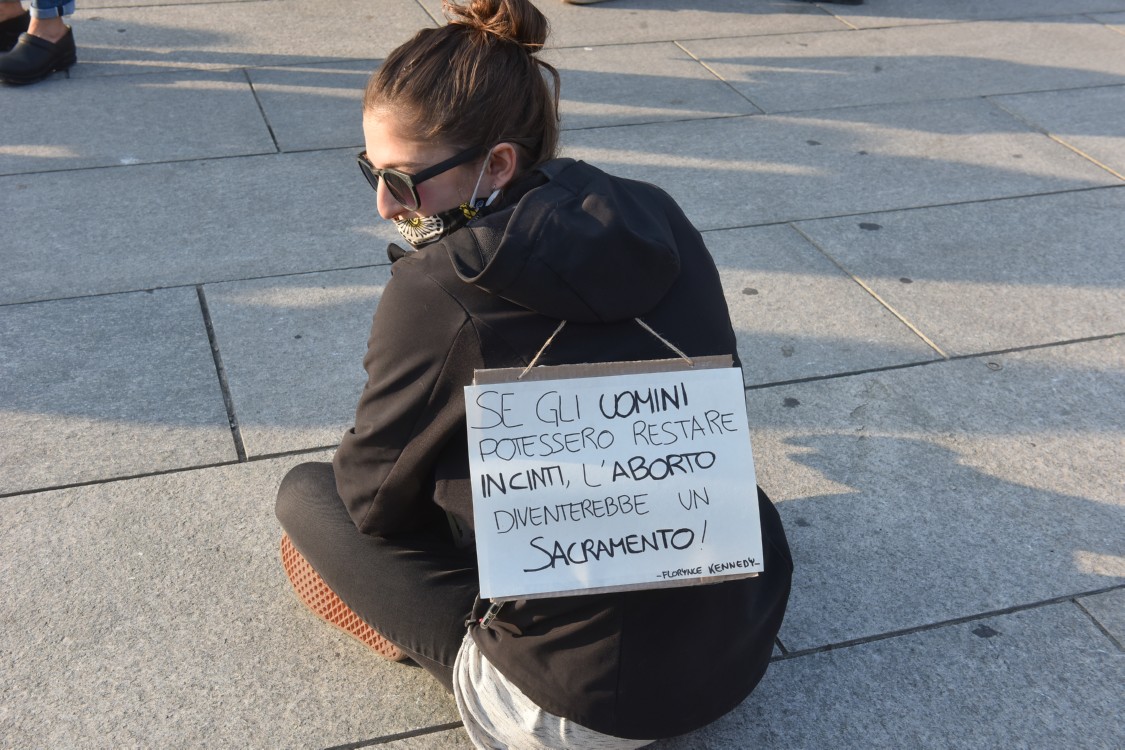 SE GLI UOMINI
POTESSERO RESTARE
INCINTI, L'ABORTO
DIVENTEREBBE UN
SACRAMENTO!
-FLORYNCE KENNEDY-